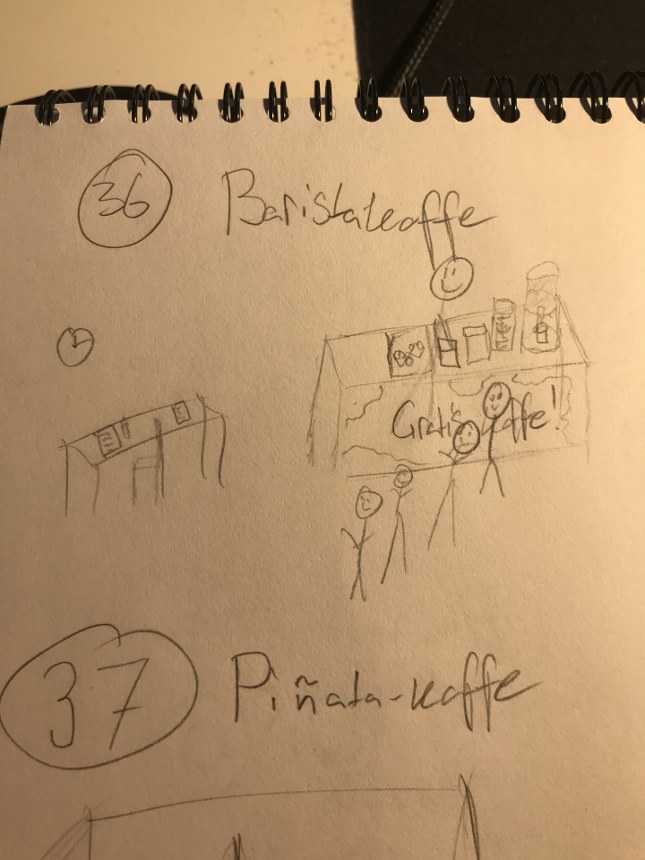 36 Baristakaffe
Gratis kaffe!
37 Piñata-kaffe